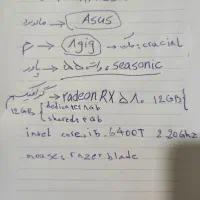 مادربرد → Asus
رم → 16gig → مارک: crucial
پاور → ۵۵۰ وات seasonic
گرافیک → radeon RX ۵۸۰ 12GB
12GB { dedicated ۸ab
shared ۴ab
intel core i5 6400T 2.20Ghz
mouse: razer blade